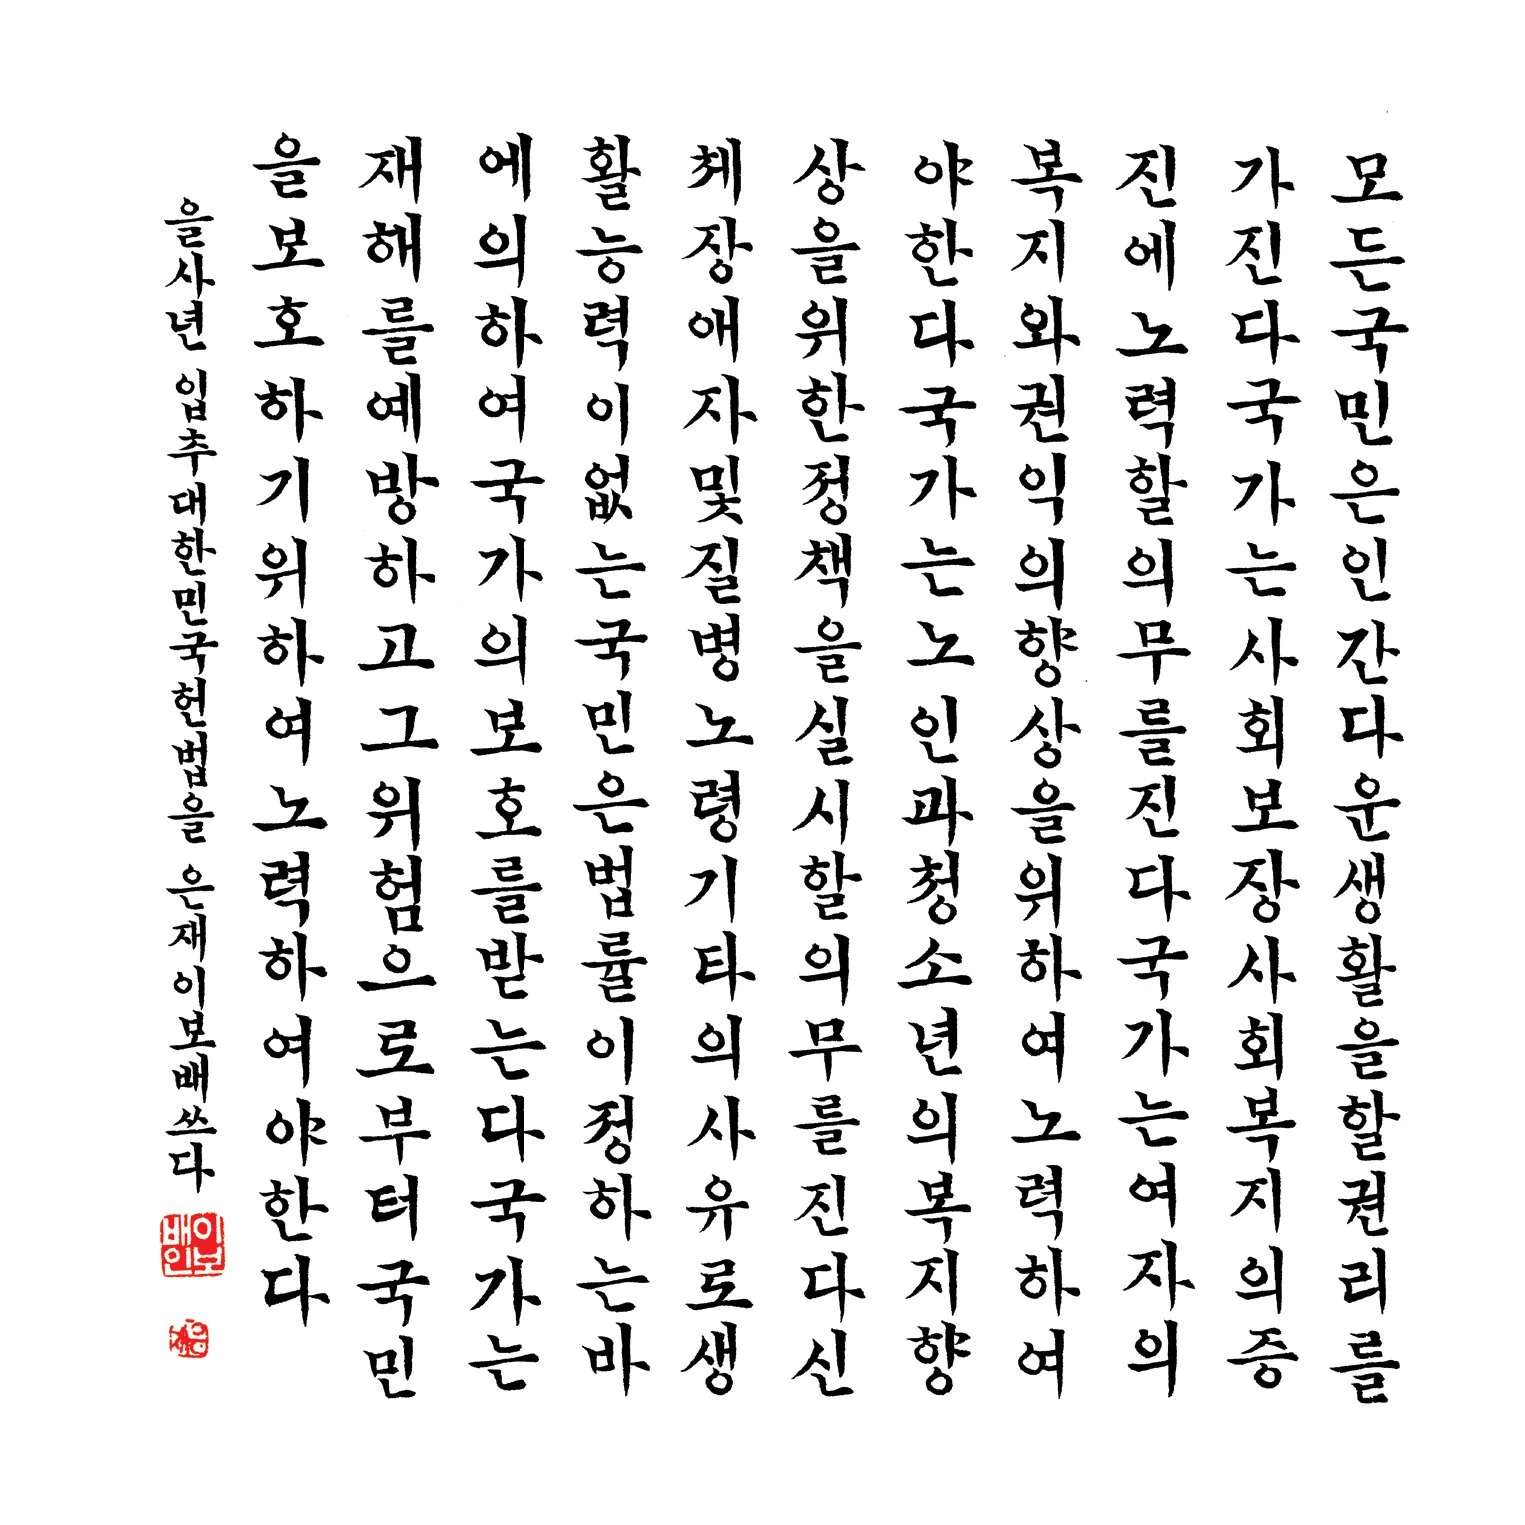 모든국민은인간다운생활을할권리를
가진다국가는사회보장사회복지의증
진에노력할의무를진다국가는여자의
복지와권익의향상을위하여노력하여
야한다국가는노인과청소년의복지향
상을위한정책을실시할의무를진다신
체장애자및질병노령기타의사유로생
활능력이없는국민은법률이정하는바
에의하여국가의보호를받는다국가는
재해를예방하고그위험으로부터국민
을보호하기위하여노력하여야한다
을사년 입추대한민국헌법을 은재이보배쓰다
이보
배인